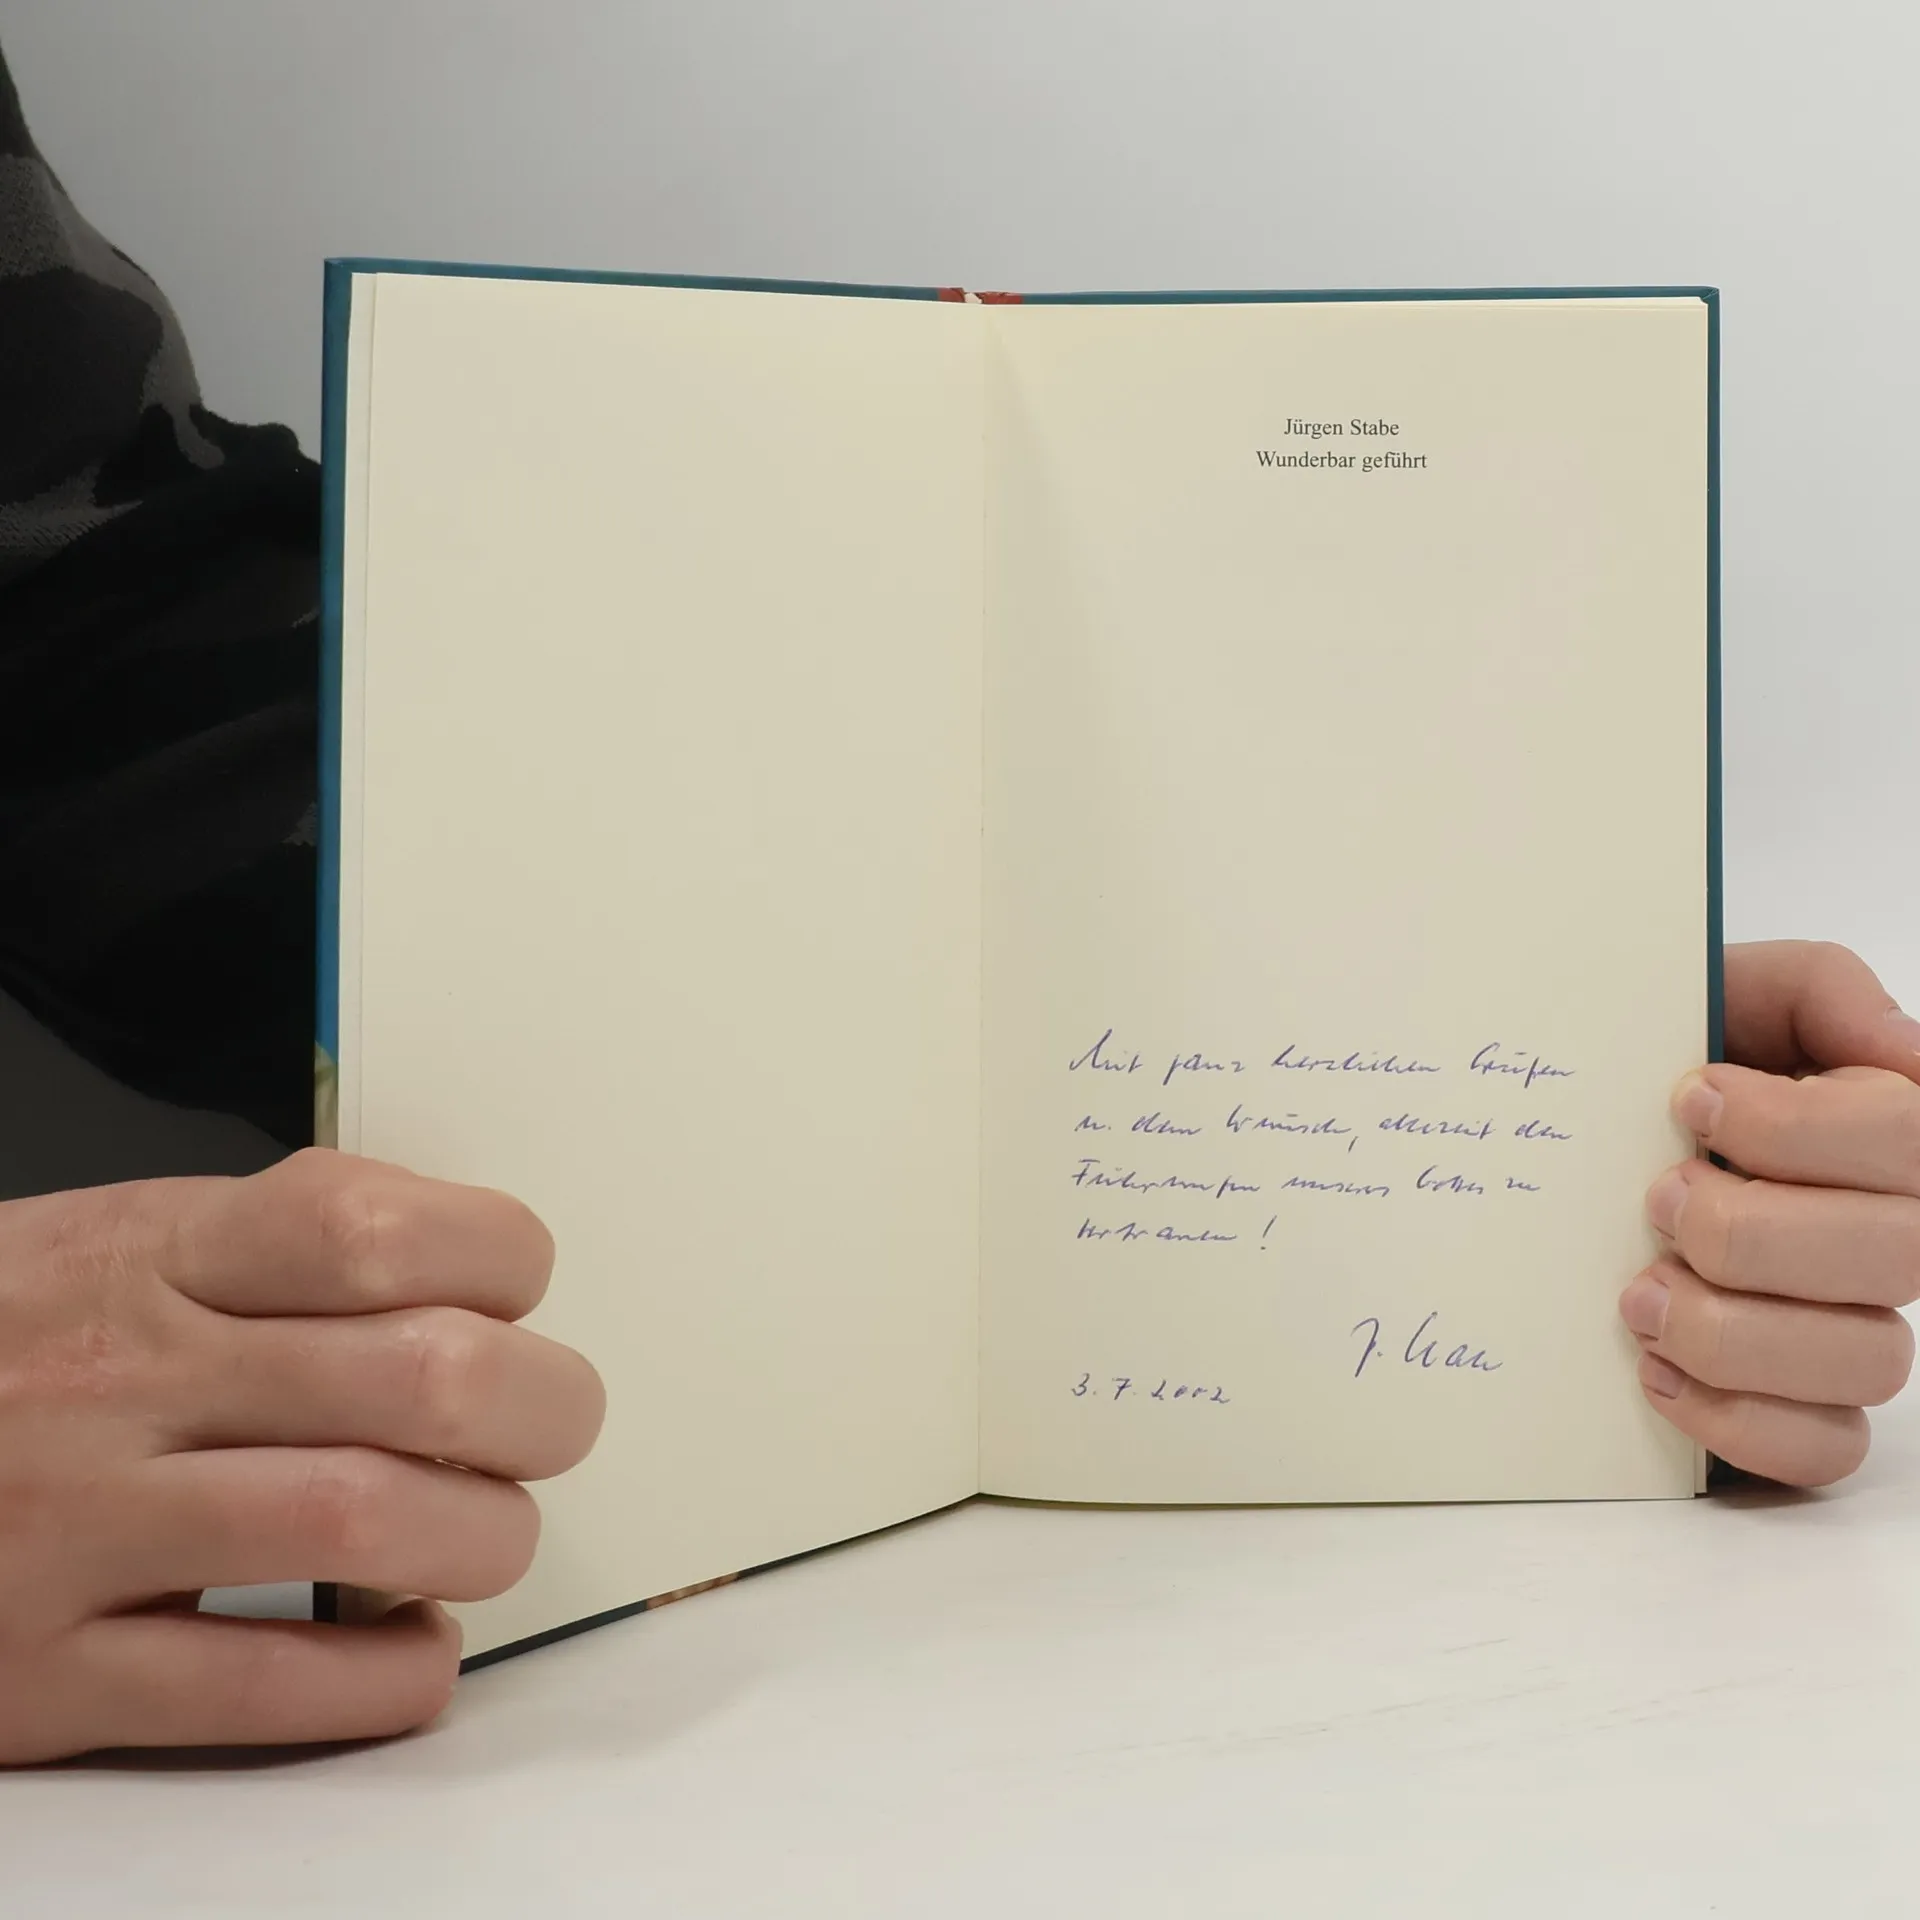 Jürgen Stabe
Wunderbar geführt
Mit ganz herzlichen Grüßen
u. dem Wunsch, allezeit den
Führungen unseres Gottes zu
vertrauen!
J.
3.7.2002